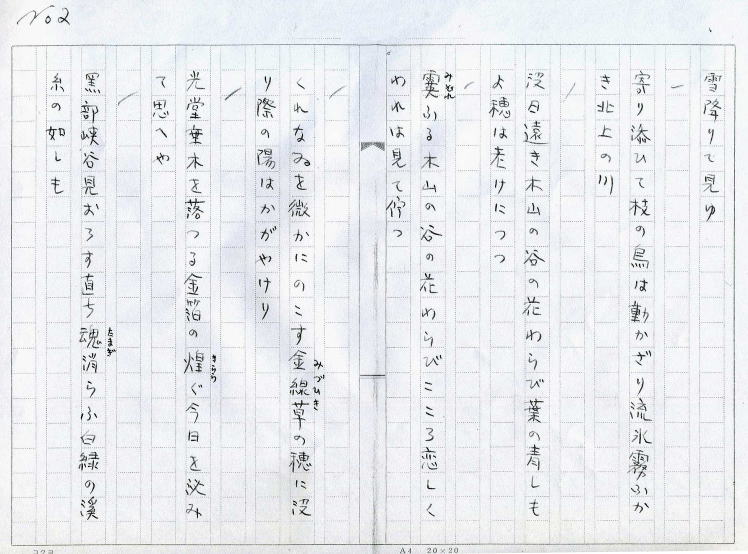 No2
雪降りて見ゆ
寄り添ひて枝の鳥は動かざり流氷霧ふか
き北上の川
没日遠き木山の谷の花わらび葉の青しも
よ穂は老けにつつ
霙ふる木山の谷の花わらびこころ恋しく
みぞれ
われは見て佇つ
くれなゐを微かにのこす金線草の穂に没
みづひき
り際の陽はかがやけり
光堂棄木を落つる金箔の煌ぐ今日を泌み
きらら
て思へや
黒部峡谷見おろす直ち魂消らふ白緑の渓
たまぎ
糸の如しも
A4 20×20